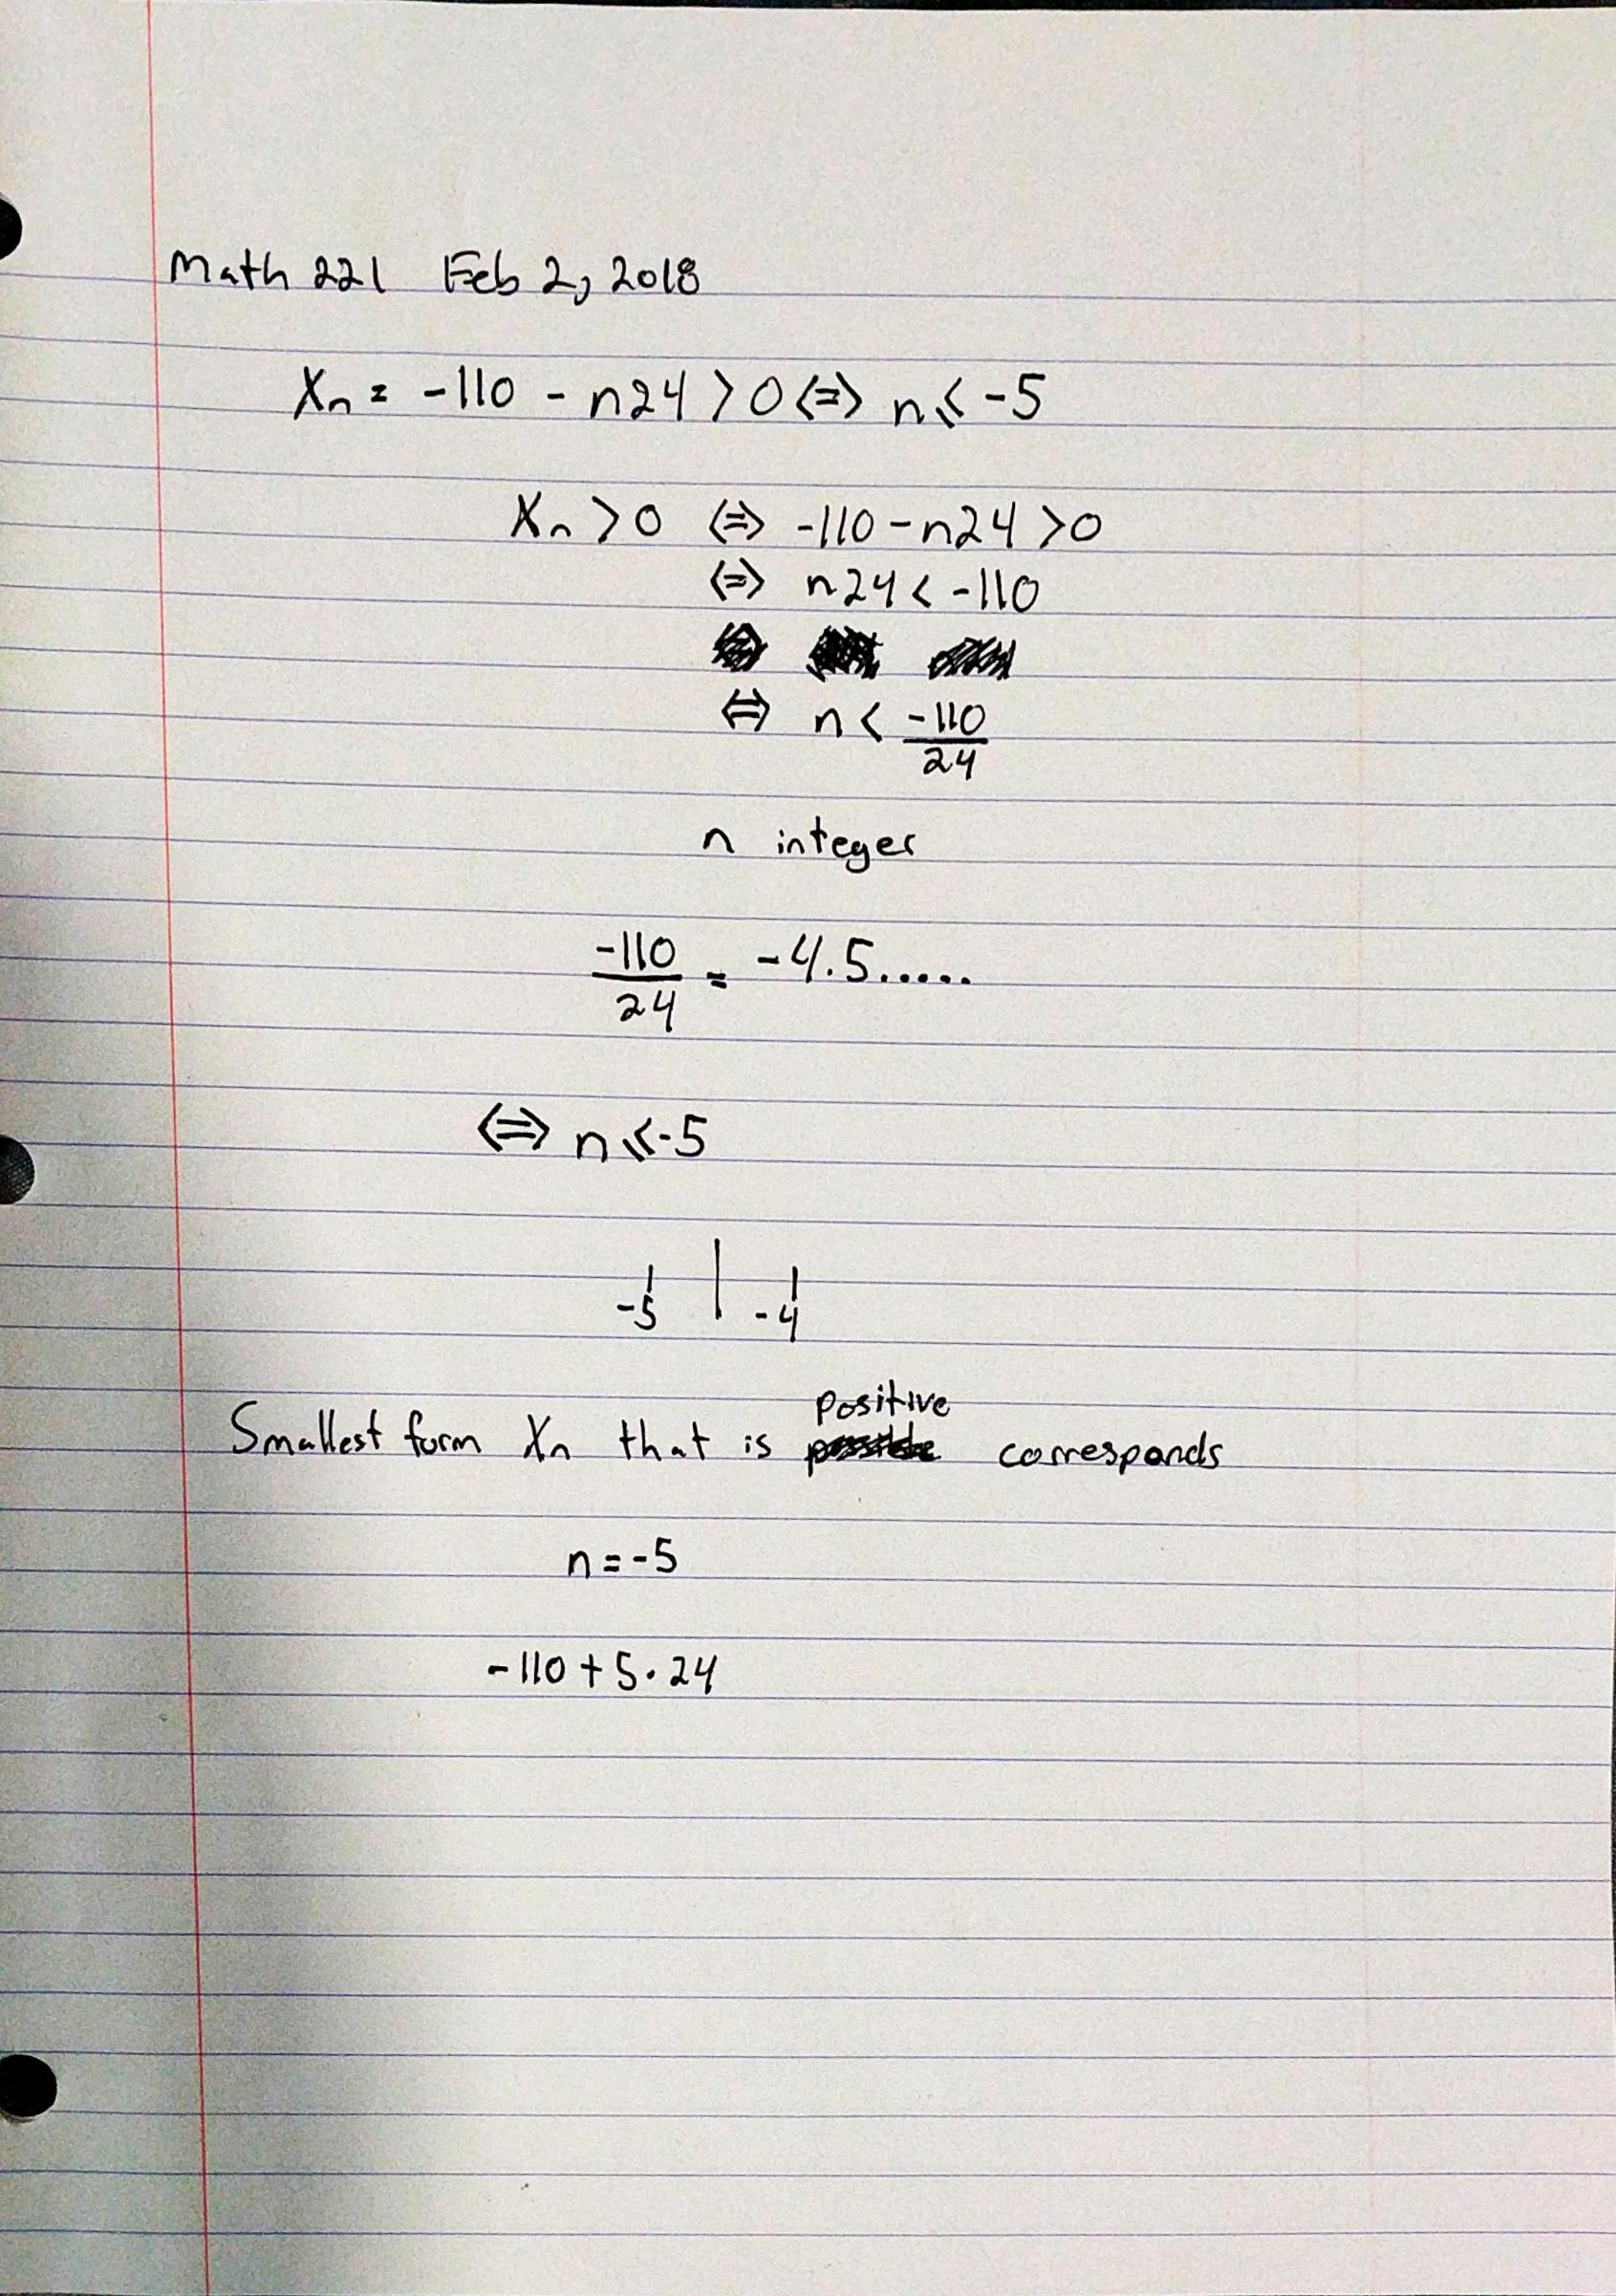 Math 221 Feb 2, 2018
Xn = -110 - n24 > 0 <=> n ≤ -5
Xn > 0 <=> -110 - n24 > 0
<=> n24 < -110
<=> n < -110/24
n integer
-110/24 = -4.5.....
<=> n ≤ -5
-5 | -4
Smallest form Xn that is positive corresponds
n = -5
-110 + 5 · 24